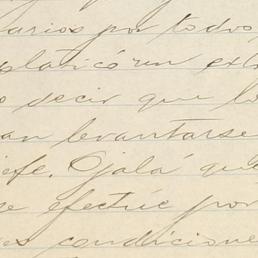 arios por todos
platicó un ext
o decir que lo
an levantarse
efe. Ojalá que
se efectúe por
es condicione